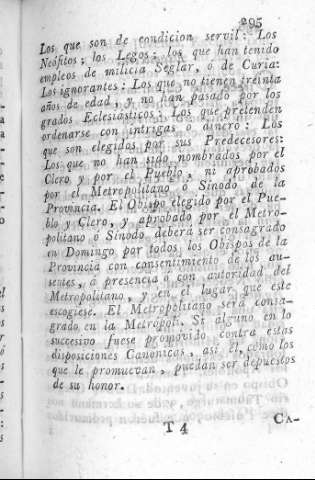 295
Los que son de condicion servil: Los
Neófitos; los Legos; los que han tenido
empleos de milicia Seglar, ó de Curia:
Los ignorantes: Los que no tienen treinta
años de edad, y no han pasado por los
grados Eclesiasticos: Los que pretenden
ordenarse con intrigas o dinero: Los
que son elegidos por sus Predecesores:
Los que no han sido nombrados por el
Clero y por el Pueblo, ni aprobados
por el Metropolitano ó Sínodo de la
Provincia. El Obispo elegido por el Pue-
blo y Clero, y aprobado por el Metro-
politano ó Sínodo deberá ser consagrado
en Domingo por todos los Obispos de la
Provincia con consentimiento de los au-
sentes, á presencia ó con autoridad del
Metropolitano, y en el lugar que este
escogiese. El Metropolitano será consa-
grado en la Metrópoli. Si alguno en lo
succesivo fuese promovido contra estas
disposiciones Canónicas, así él, como los
que le promuevan, puedan ser depuestos
de su honor.
T 4
CA-